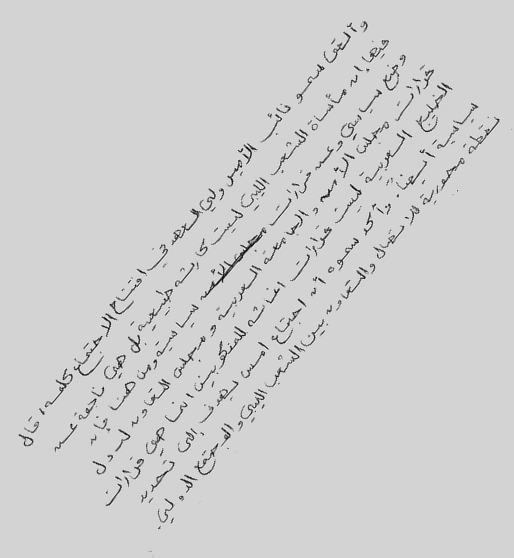 وألقى سمو نائب الأمير ولي العهد في افتتاح الاجتماع كلمة، قال
فيها إن مأساة الشعب الليبي ليست كارثة طبيعية بل هي ناجمة عن
وضع سياسي وعن قرارات سياسية ومن هنا فإن
قرارات مجلس الأمن والجامعة العربية ومجلس التعاون لدول
الخليج العربية ليست قرارات اغاثة للمنكوبين انما هي قرارات
سياسية أيضاً. وأكد سموه أن اجتماع امس يهدف إلى تحديد
نقطة محورية للاتصال والتعاون بين الشعب الليبي والمجتمع الدولي.